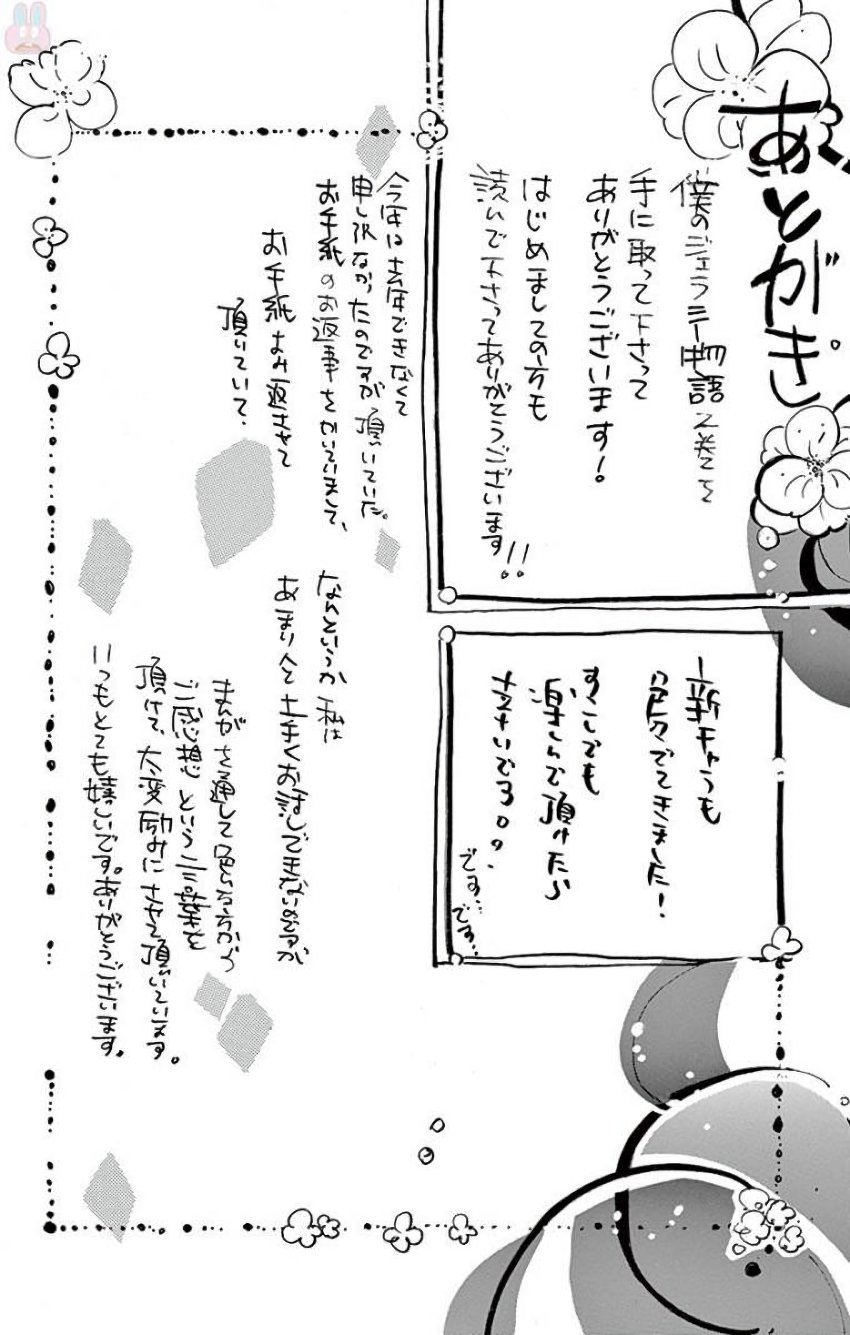 あとがき。
僕のジェラシー物語2巻てを
手に取って下さって
ありがとうございます!
はじめましての方も
読んで下さってありがとうございます!!
新キャラも
でてきました!
すこしでも
楽しんで頂けたら
幸いでう。。
です…です…
今年は去年できなくて
申し訳なかったのですが頂いていた。
お手紙のお返事をかいていまして、
お手紙よみ返させて
頂いていて、
なんというか私は
あまり人と上手くお話しできないのですが
まんがを通して色んな方から
ご感想という言葉を
頂けて、大変励みにさせて頂いています。
いつもとても嬉しいです。ありがとうございます。